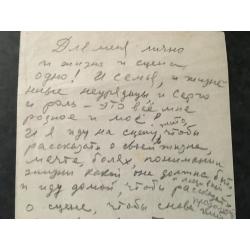 Для меня лично
и жизнь и сцена
одно! И семья, и жизнен
ные неурядицы и Серго
и роль – это всё мне
родное и моё! жить
И я иду на сцену, чтобы
рассказать о своей жизни,
мечте, болях, понимании
жизни какой она должна быть,
и иду домой, чтобы рассказать
о сцене, чтобы снова